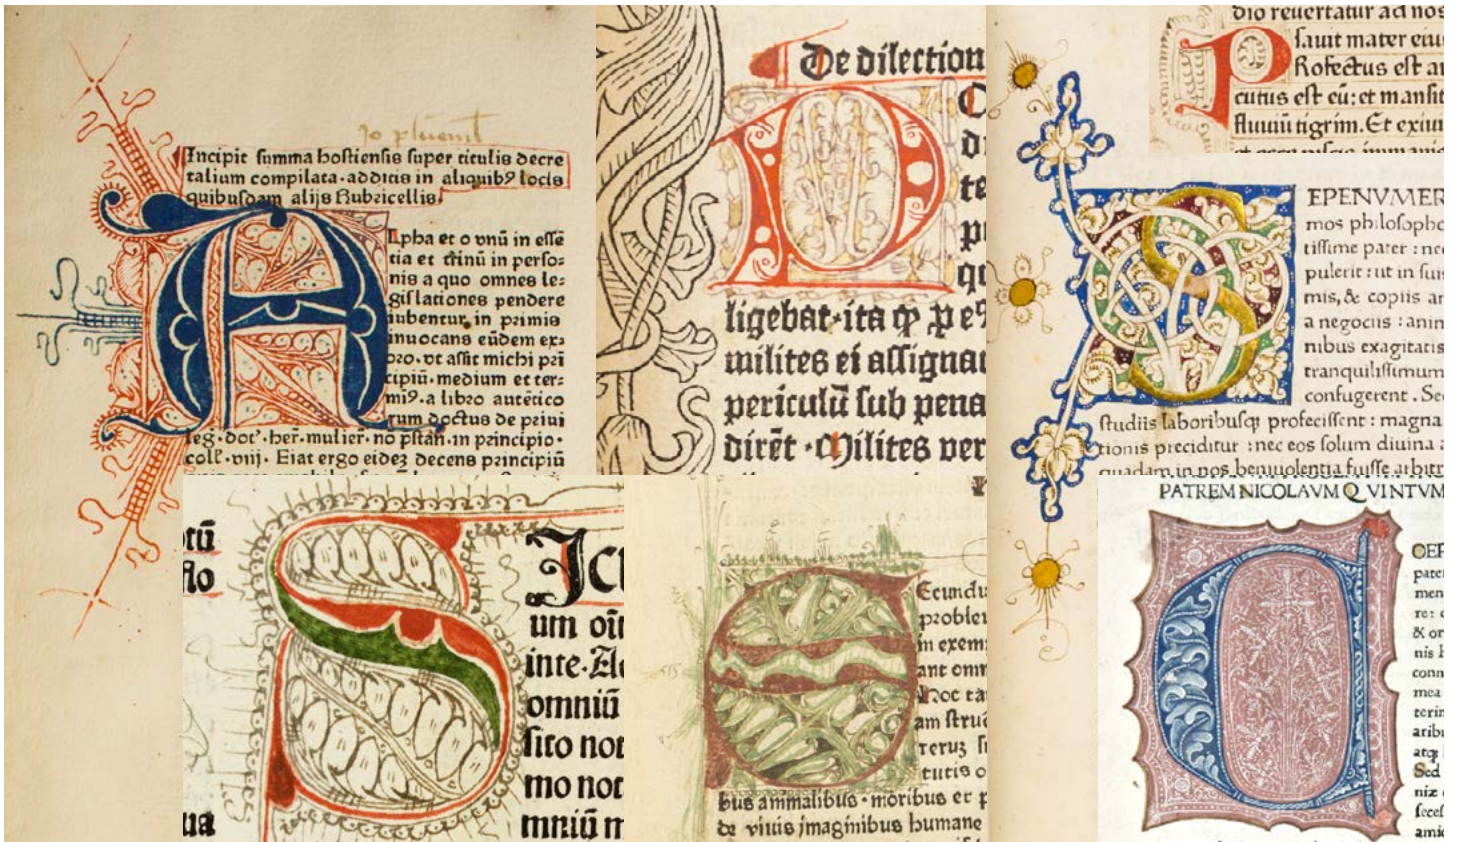 Incipit summa hostiensis super titulis decre
talium compilata·additis in aliquibꝯ locis
quibusdam alijs Rubricellis.
A
Lpha et o vnū in essē
tia et trinū in perso-
nis a quo omnes le-
gislationes pendere
iubentur, in primis
inuocans eūdem ex-
oro. vt assit michi pri
cipiū·medium et ter-
miꝯ·a libro autētico
rum doctus de priui
leg·doc̄·her·mulier·no p̄stan·in principio·
coll̄·viij·Eiat ergo eidez decens principiū
De dilection
D
ligebat·ita
milites ei assigna
periculū sub pena
dirēt·Milites ver
dio reuertatur ad nos
sauit mater eiu
P
Rofectus est an
cutus est eū: et mansit
fluuiū tigrim. Et exiui
S
EPENVMER
mos philosopho
tissime pater : nec
pulerit : ut in suis
mis, & copiis ar
a negociis : anim
nibus exagitatis
tranquilissimum
confugerent . Se
studiis laboribusq; profecissent : magna
tionis preciditur : nec eos solum diuina a
quadam in nos beniuolentia fuisse arbitr
tū
flo
ua
S
um oī
inte·
omniū
sito not
mo not
mniū m
S
Ecundu
problem
in exem
ant omn
Hoc ta
am struc
reruz
tutis o
bus animalibus·moribus et p
de viuis imaginibus humane
PATREM NICOLAVM QVINTVM
OEP
pater
men
re:
& or
nis
conn
mea
terin
atibu
atq;
Sed
niz
secess
amic